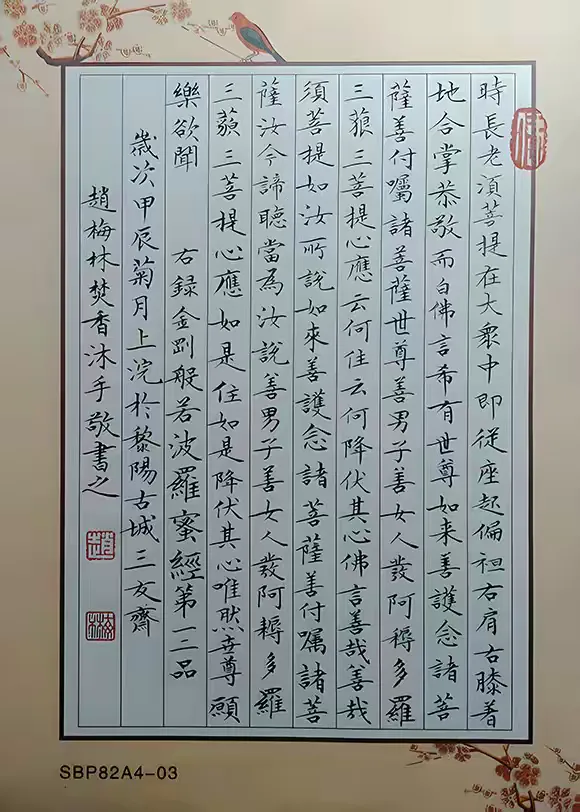 佛
時長老須菩提在大衆中即従座起偏袒右肩右膝着
地合掌恭敬而白佛言希有世尊如来善護念諸菩
薩善付囑諸菩薩世尊善男子善女人發阿耨多羅
三藐三菩提心應云何住云何降伏其心佛言善哉善哉
須菩提如汝所說如來善護念諸菩薩善付嘱諸菩
薩汝今諦聽當為汝說善男子善女人發阿耨多羅
三藐三菩提心應如是住如是降伏其心唯然世尊願
樂欲聞 右錄金剛般若波羅蜜經第二品
歲次甲辰菊月上浣於黎陽古城三友齋
趙梅林焚香沐手敬書之
趙
梅林
SBP82A4-03